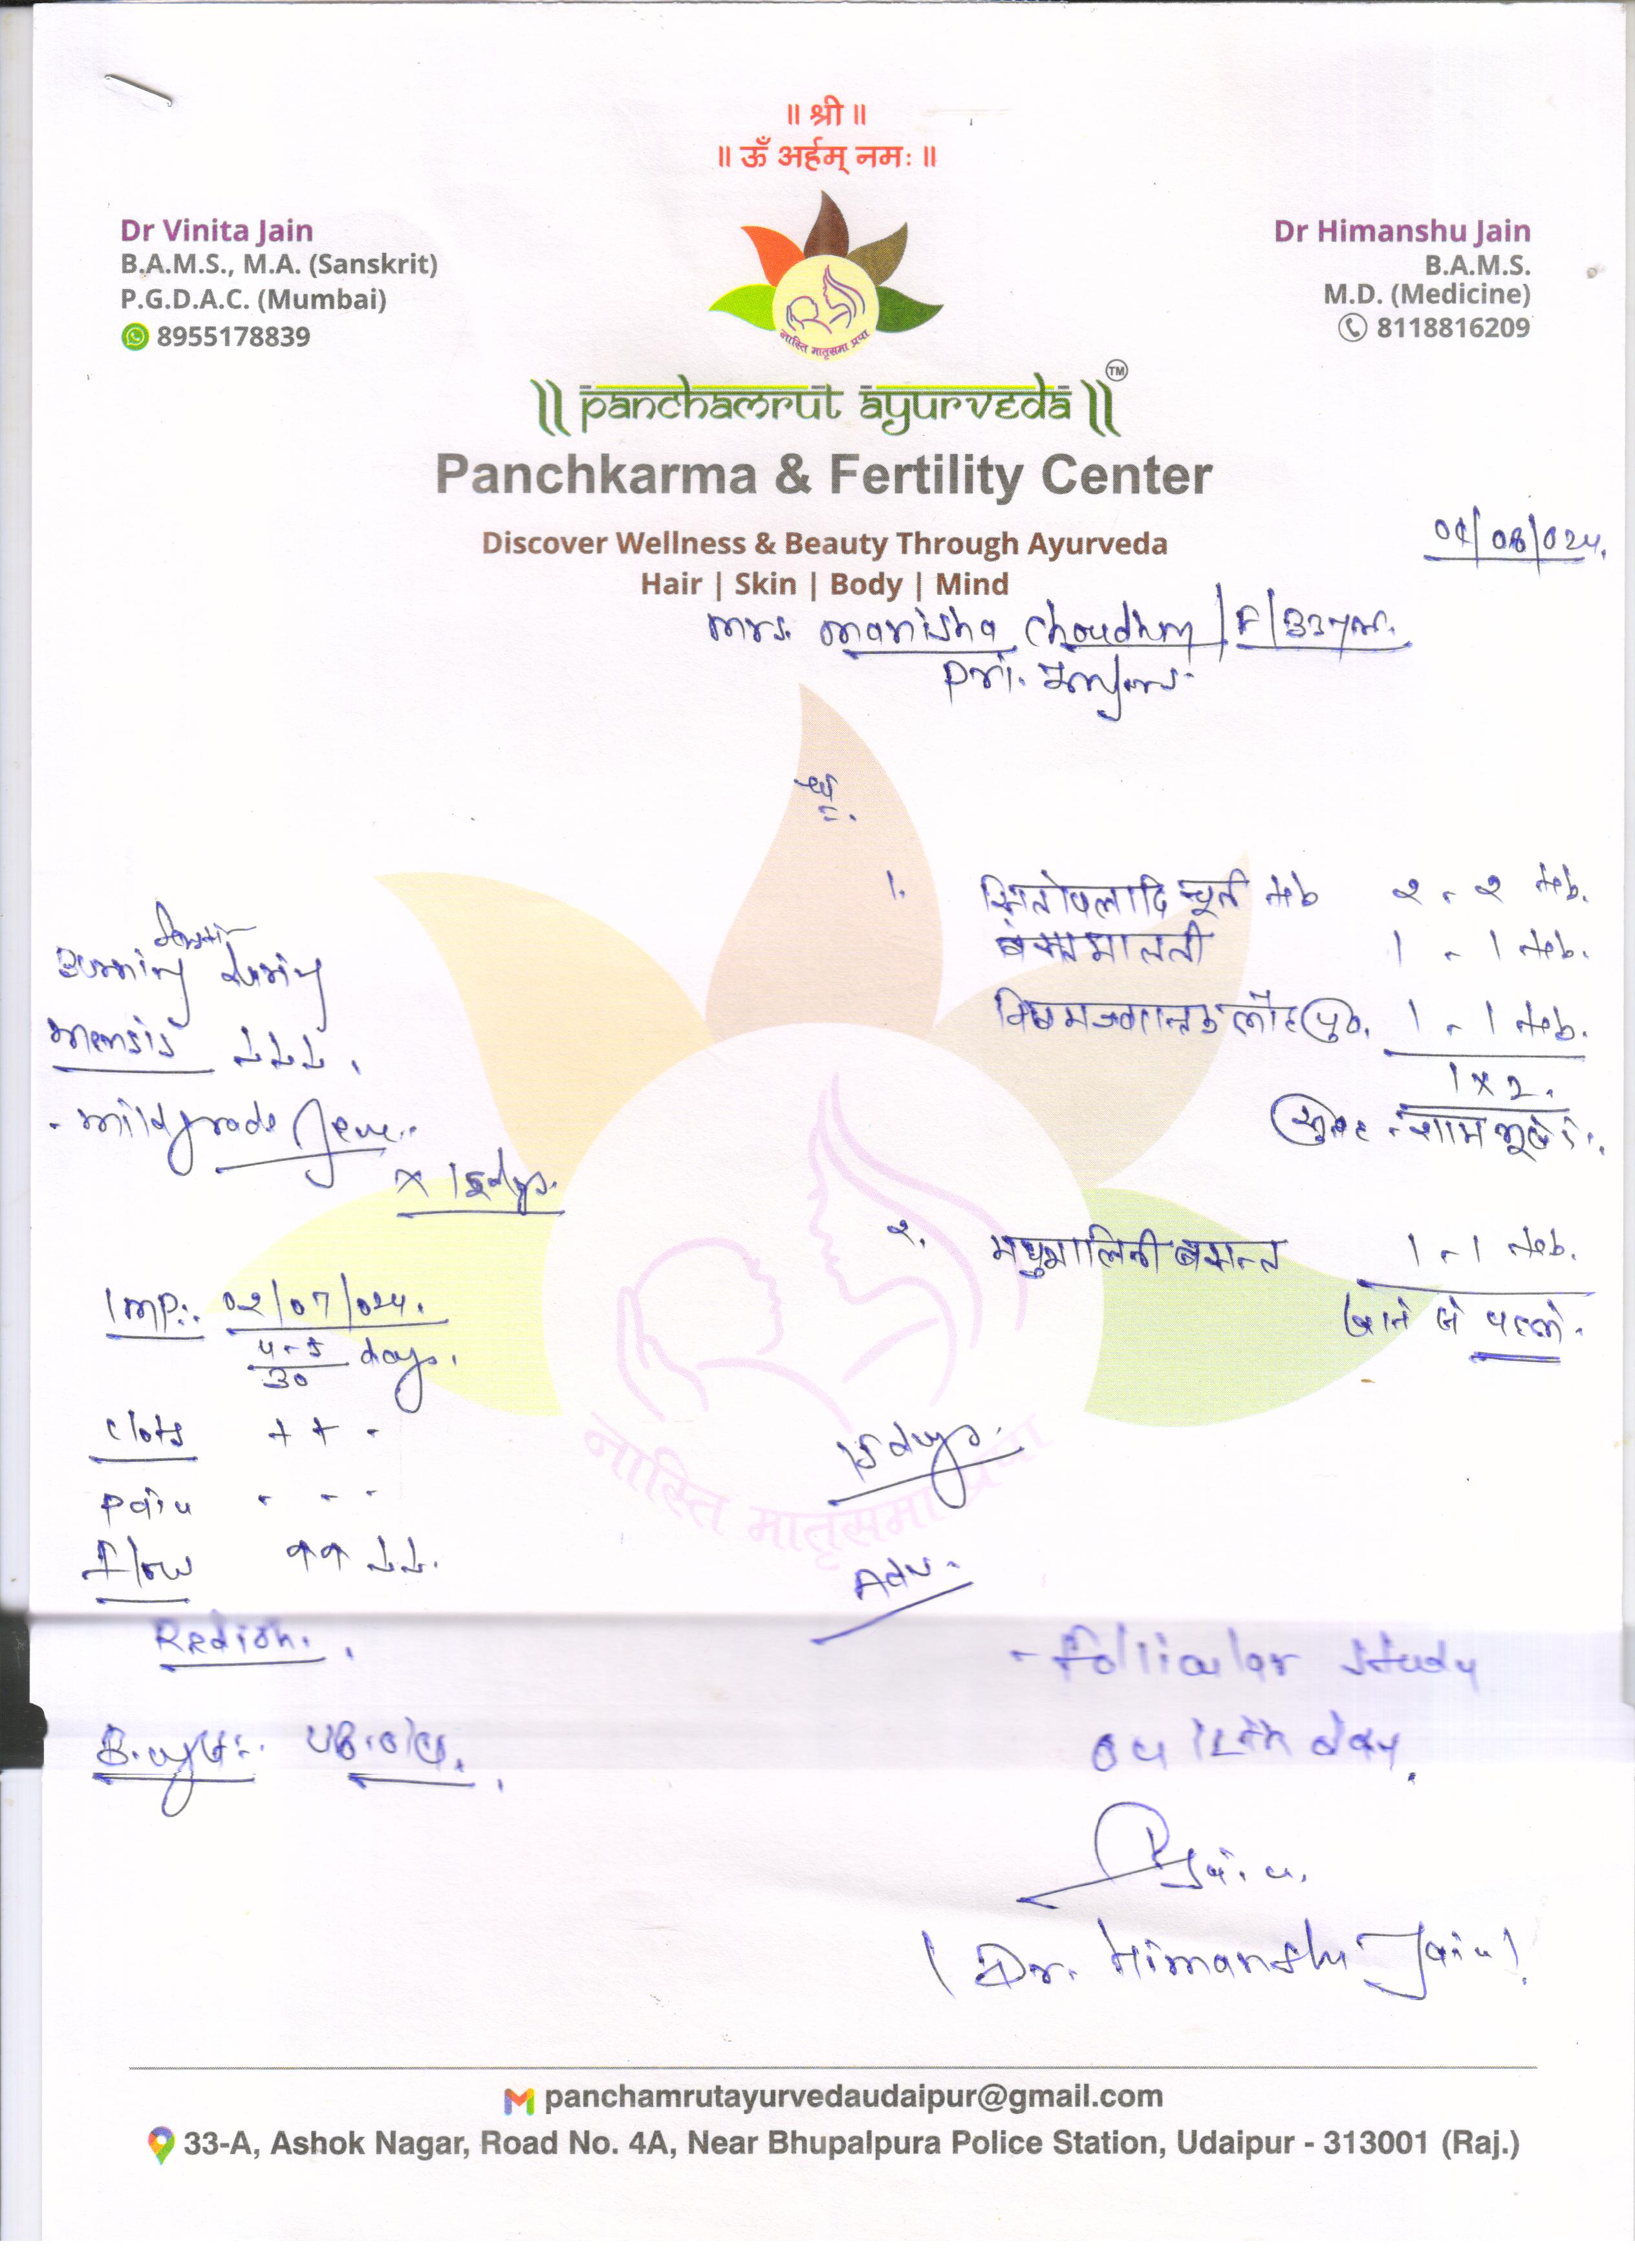 ॥ श्री ॥
॥ ऊँ अर्हम् नमः ॥
Dr Vinita Jain
B.A.M.S., M.A. (Sanskrit)
P.G.D.A.C. (Mumbai)
8955178839
Dr Himanshu Jain
B.A.M.S.
M.D. (Medicine)
8118816209
नास्ति मातृसमा प्रपा
|| panchamrut ayurveda || TM
Panchkarma & Fertility Center
Discover Wellness & Beauty Through Ayurveda
Hair | Skin | Body | Mind
Mrs. Manisha Choudhry | F | 33yrs.
Pri.
1. सितोपलादि चूर्ण tab २ - २ tab.
बसन्तमालती 1 - 1 tab.
विषमज्वरान्तक लौह पुट. 1 - 1 tab.
1 x 2.
सुबह - शाम भूखे
२. मधुमालिनी बसन्त 1 - 1 tab.
खाने से पहले.
15 days.
Adv.
- Follicular study
on 12th day.
Burning during
mensis ↓↓↓.
- mild grade fever
x 15 days.
LMP:. 02/07/024.
4-5 days.
30
Clots + + -
Pain - - -
Flow ↑↑ ↓↓.
Redish.
Jain.
(Dr. Himanshu Jain).
नास्ति मातृसमा प्रपा
panchamrutayurvedaudaipur@gmail.com
33-A, Ashok Nagar, Road No. 4A, Near Bhupalpura Police Station, Udaipur - 313001 (Raj.)